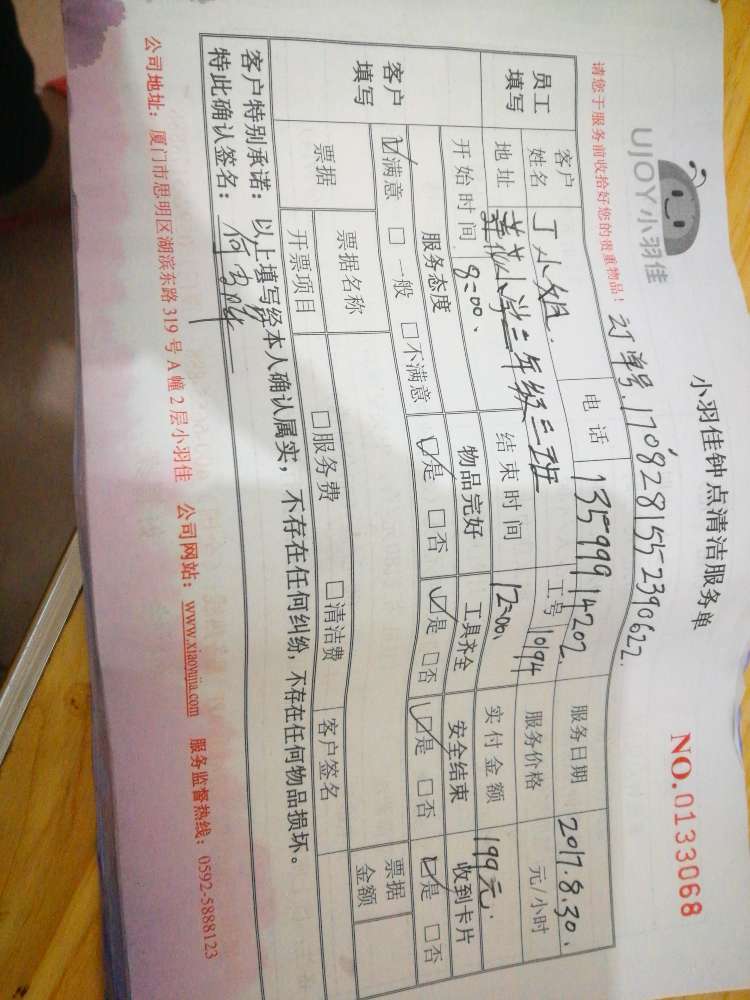 UJOY小羽佳
小羽佳钟点清洁服务单
NO.0133068
请您于服务前收拾好您的贵重物品!
订单号.1708281552390622.
员工填写
客户姓名 丁小姐. 电话 13599914202. 服务日期 2017.8.30.
地址 莲花小学二年级三班 工号 1094 服务价格 元/小时
开始时间 8:00. 结束时间 12:00. 实付金额 199元.
客户填写
服务态度 物品完好 工具齐全 安全结束 收到卡片
☑满意 □一般 □不满意 ☑是 □否 ☑是 □否 ☑是 □否 ☑是 □否
票据 票据名称 客户签名 票据金额
开票项目 □服务费 □清洁费
客户特别承诺:以上填写经本人确认属实,不存在任何纠纷,不存在任何物品损坏。
特此确认签名:
公司地址:厦门市思明区湖滨东路319号A幢2层小羽佳 公司网站:www.xiaoyujia.com 服务监督热线:0592-5888123